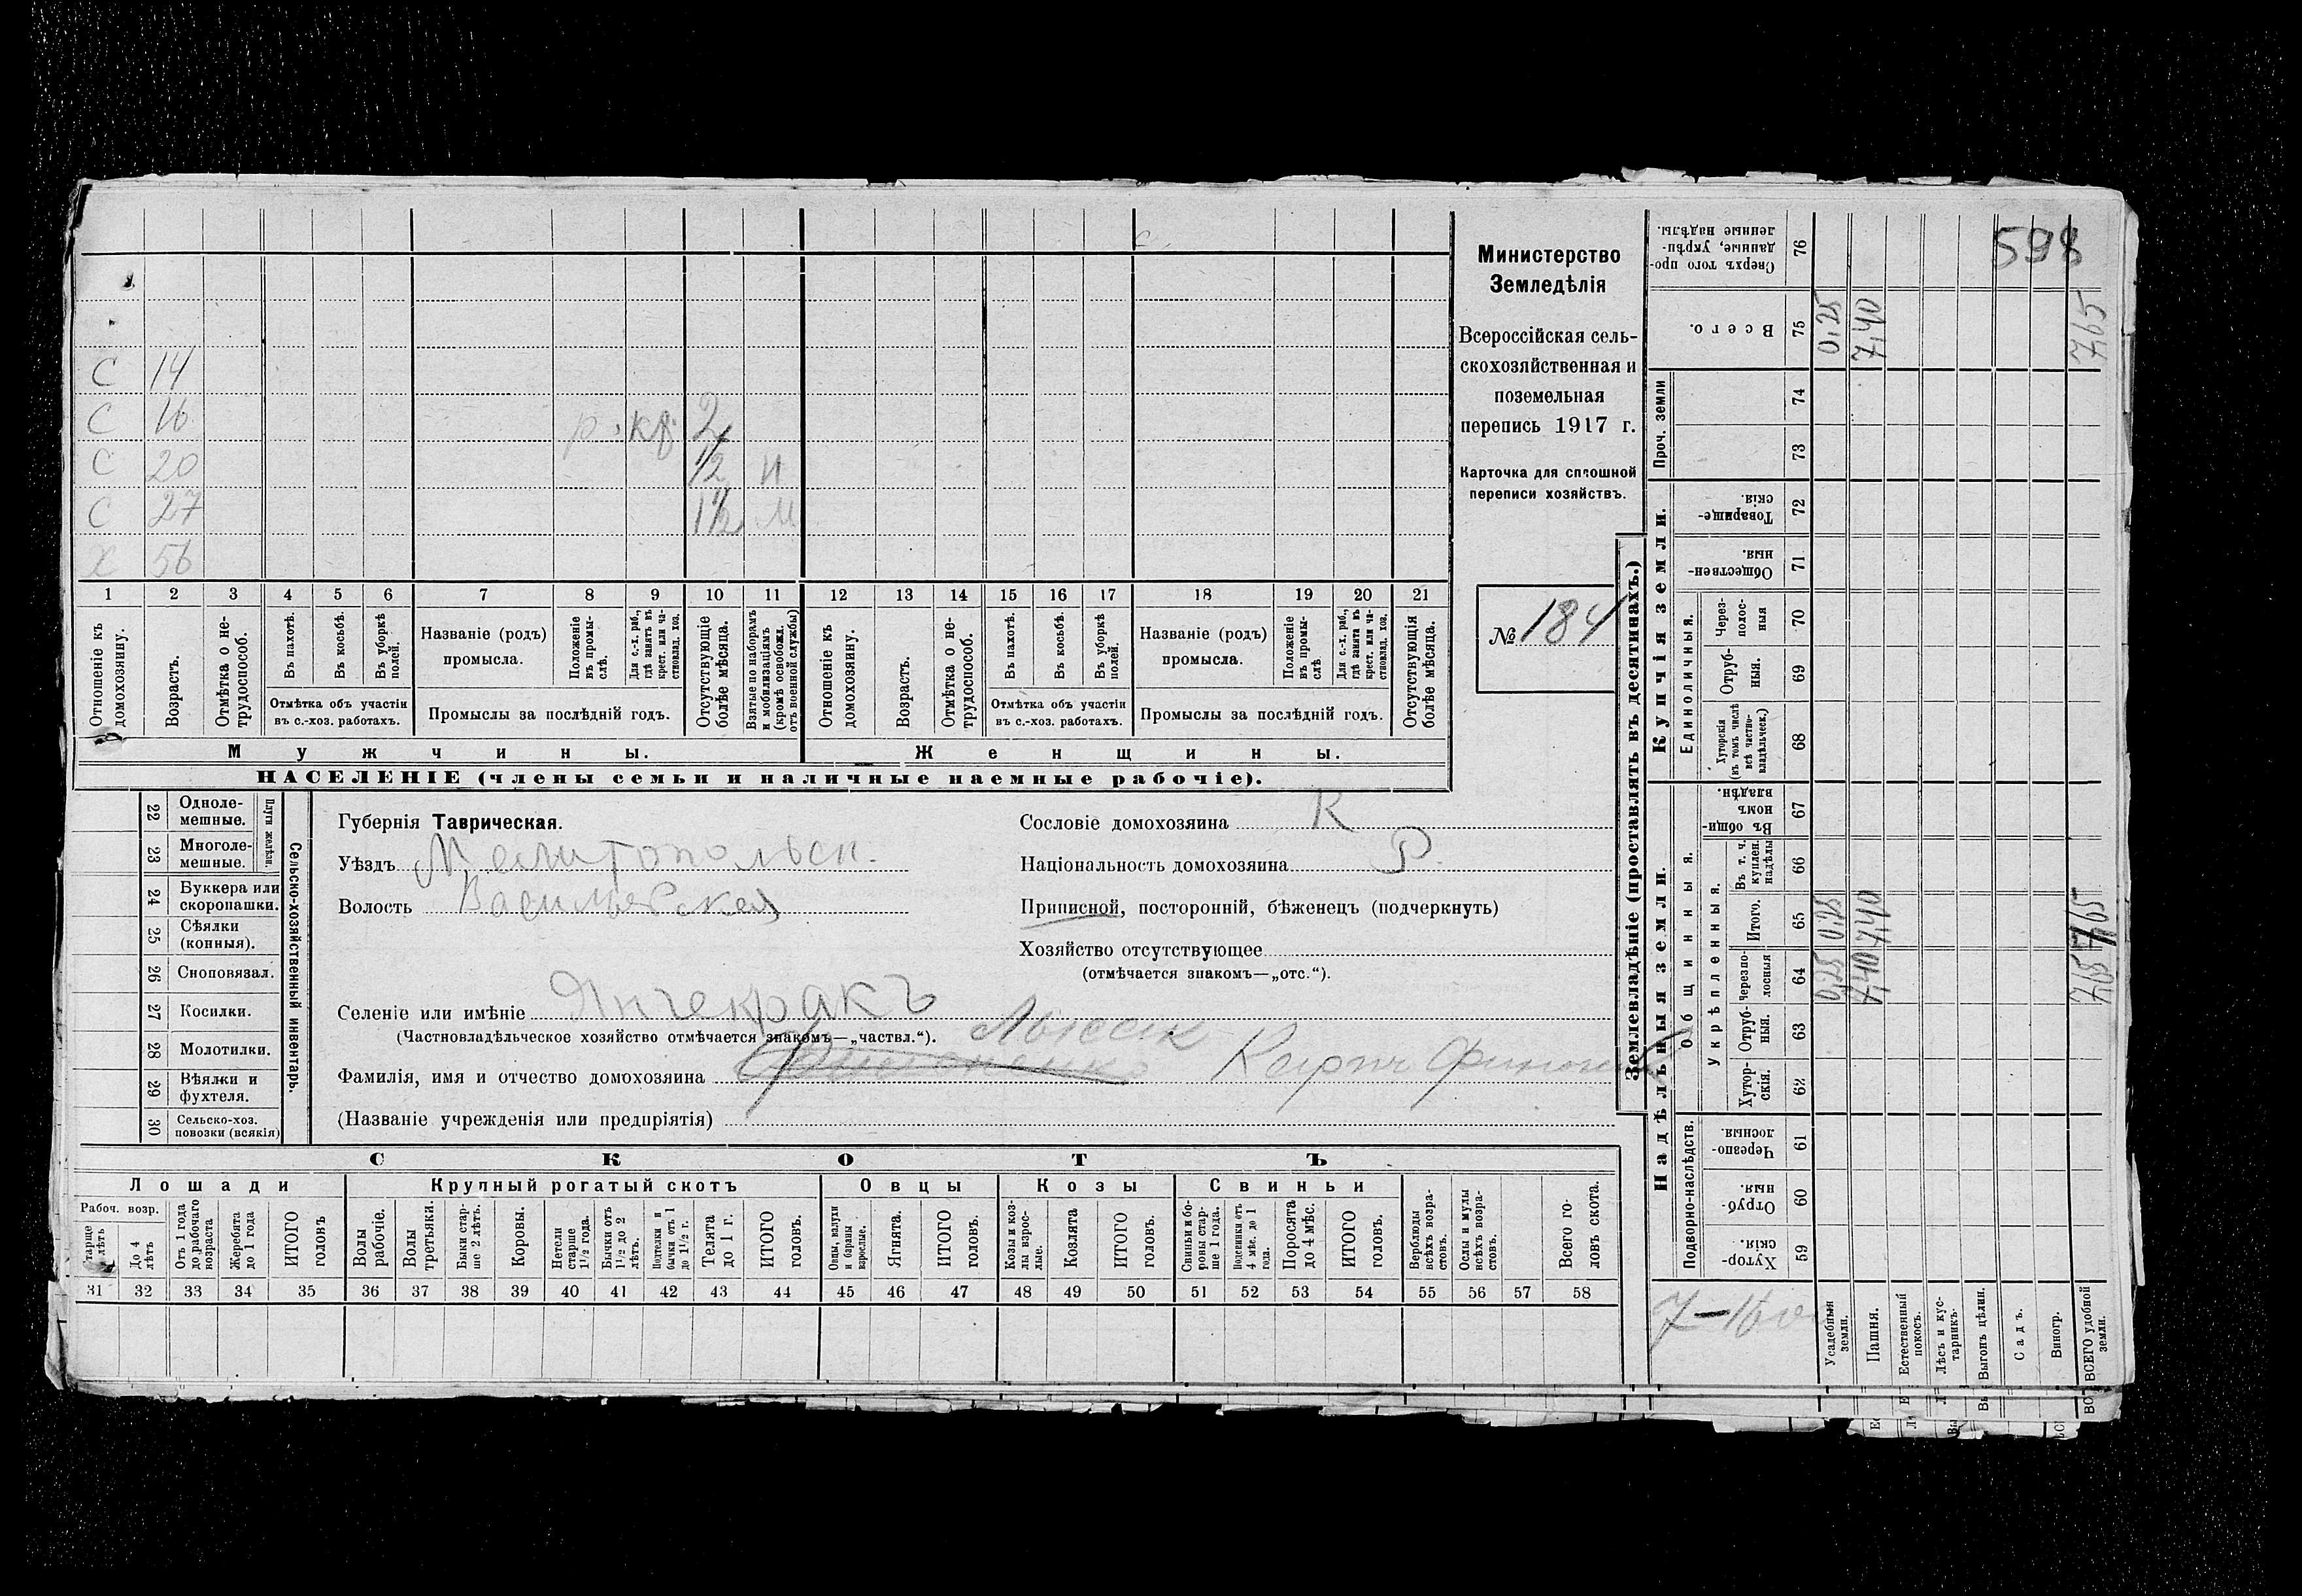 598
С 14
С 16 р. кр. 2
С 20 1/2 м
С 27 1 1/2 м
Х 56
1 2 3 4 5 6 7 8 9 10 11 12 13 14 15 16 17 18 19 20 21
Отношеніе къ домохозяину.
Возрастъ.
Отмѣтка о нетрудоспособ.
Въ пахотѣ.
Въ косьбѣ.
Въ уборкѣ полей.
Отмѣтка объ участіи въ с.-хоз. работахъ.
Названіе (родъ) промысла.
Положеніе въ промыслѣ.
Для с.-х. раб., гдѣ занятъ въ крест. или частновлад. хоз.
Промыслы за послѣдній годъ.
Отсутствующіе болѣе мѣсяца.
Взятые по наборамъ и мобилизаціямъ (кромѣ освобожд. отъ военной службы)
Отношеніе къ домохозяину.
Возрастъ.
Отмѣтка о нетрудоспособ.
Въ пахотѣ.
Въ косьбѣ.
Въ уборкѣ полей.
Отмѣтка объ участіи въ с.-хоз. работахъ.
Названіе (родъ) промысла.
Положеніе въ промыслѣ
Для с.-х. раб., гдѣ занята въ крест. или частновлад. хоз.
Промыслы за послѣдній годъ.
Отсутствующія болѣе мѣсяца.
Мужчины.
Женщины.
НАСЕЛЕНІЕ (члены семьи и наличные наемные рабочіе).
Министерство
Земледѣлія
Всероссійская сель-
скохозяйственная и
поземельная
перепись 1917 г.
Карточка для сплошной
переписи хозяйствъ.
№ 184
Сельско-хозяйственный инвентарь.
Плуги желѣзн.
22 Однолемешные.
23 Многолемешные.
24 Буккера или скоропашки.
25 Сѣялки (конныя).
26 Сноповязал.
27 Косилки.
28 Молотилки.
29 Вѣялки и фухтеля.
30 Сельско-хоз. повозки (всякія)
Губернія Таврическая.
Уѣздъ Мелитопольск.
Волость Васильевская
Сословіе домохозяина К
Національность домохозяина Р.
Приписной, посторонній, бѣженецъ (подчеркнуть)
Хозяйство отсутствующее
(отмѣчается знакомъ—„отс.“).
Селеніе или имѣніе Янчекракъ
(Частновладѣльческое хозяйство отмѣчается знакомъ—„частвл.“).
Фамилія, имя и отчество домохозяина
(Названіе учрежденія или предпріятія)
СКОТЪ
Лошади
Крупный рогатый скотъ
Овцы
Козы
Свиньи
Рабоч. возр.
До 4 лѣтъ
Отъ 1 года до рабочаго возраста
Жеребята до 1 года
ИТОГО головъ
Волы рабочіе.
Волы третьяки.
Быки старше 2 лѣтъ.
Коровы.
Нетели старше 1½ года.
Бычки отъ 1½ до 2 лѣтъ.
Подтелки и бычки отъ 1 до 1½ г.
Телята до 1 г.
ИТОГО головъ.
Овцы, валухи и бараны взрослые.
Ягнята.
ИТОГО головъ.
Козы и козлы взрослые.
Козлята
ИТОГО головъ.
Свиньи и боровы старше 1 года.
Подсвинки отъ 4 мѣс. до 1 года.
Поросята до 4 мѣс.
ИТОГО головъ.
Верблюды всѣхъ возрастовъ.
Ослы и мулы всѣхъ возрастовъ.
Всего головъ скота.
31 32 33 34 35 36 37 38 39 40 41 42 43 44 45 46 47 48 49 50 51 52 53 54 55 56 57 58
Землевладѣніе (проставлять въ десятинахъ.)
Надѣльныя земли.
Купчія земли.
Проч. земли
Подворно-наслѣдств.
Общинныя.
Укрѣпленныя.
Единоличныя.
76 Сверхъ того проданные, укрѣпленные надѣлы.
75 Всего. 0,25 7,40 7,65
74
73
72 Товарищескія.
71 Общественныя.
70 Черезполосныя
69 Отрубныя.
68 Хуторскія (въ томъ числѣ всѣ частновладѣльческ.)
67 Въ общинномъ владѣн.
66 Въ т. ч. куплен. надѣлы
65 Итого. 0,25 7,40 7,65
64 Черезполосныя 0,25 7,40 7,65
63 Отрубныя.
62 Хуторскія.
61 Черезполосныя.
60 Отрубныя.
59 Хуторскія.
Усадебныя земли.
Пашня.
Естественный покосъ.
Лѣсъ и кустарникъ.
Выгонъ цѣлин.
Садъ.
Виногр.
ВСЕГО удобной земли.